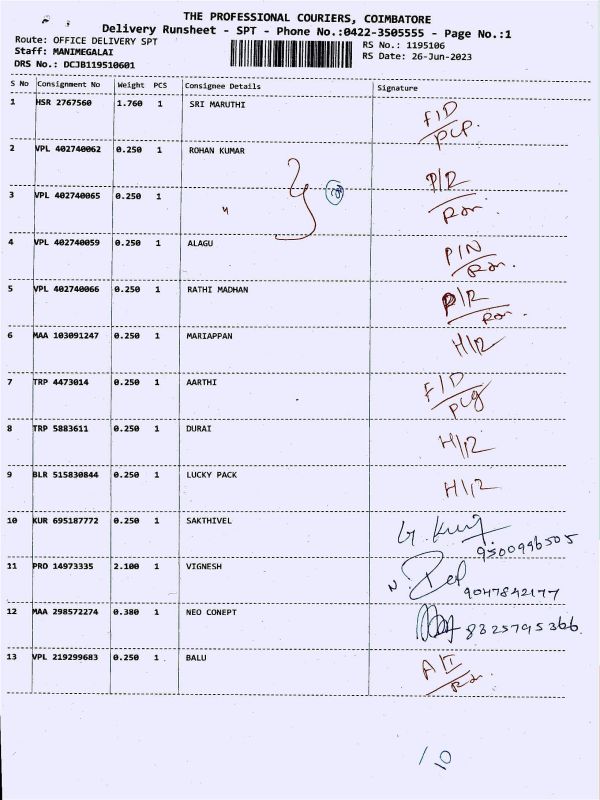 THE PROFESSIONAL COURIERS, COIMBATORE
Delivery Runsheet - SPT - Phone No.:0422-3505555 - Page No.:1
Route: OFFICE DELIVERY SPT
RS No.: 1195106
Staff: MANIMEGALAI
RS Date: 26-Jun-2023
DRS No.: DCJB119510601
S No Consignment No Weight PCS Consignee Details Signature
1 HSR 2767560 1.760 1 SRI MARUTHI F/D
2 VPL 402740062 0.250 1 ROHAN KUMAR P/R
3 VPL 402740065 0.250 1 "
4 VPL 402740059 0.250 1 ALAGU P/N
5 VPL 402740066 0.250 1 RATHI MADHAN P/R
6 MAA 103091247 0.250 1 MARIAPPAN H/R
7 TRP 4473014 0.250 1 AARTHI F/D
8 TRP 5883611 0.250 1 DURAI H/R
9 BLR 515830844 0.250 1 LUCKY PACK H/R
10 KUR 695187772 0.250 1 SAKTHIVEL
9500996505
11 PRO 14973335 2.100 1 VIGNESH
9047842177
12 MAA 298572274 0.380 1 NEO CONEPT 8325795366
13 VPL 219299683 0.250 1 BALU